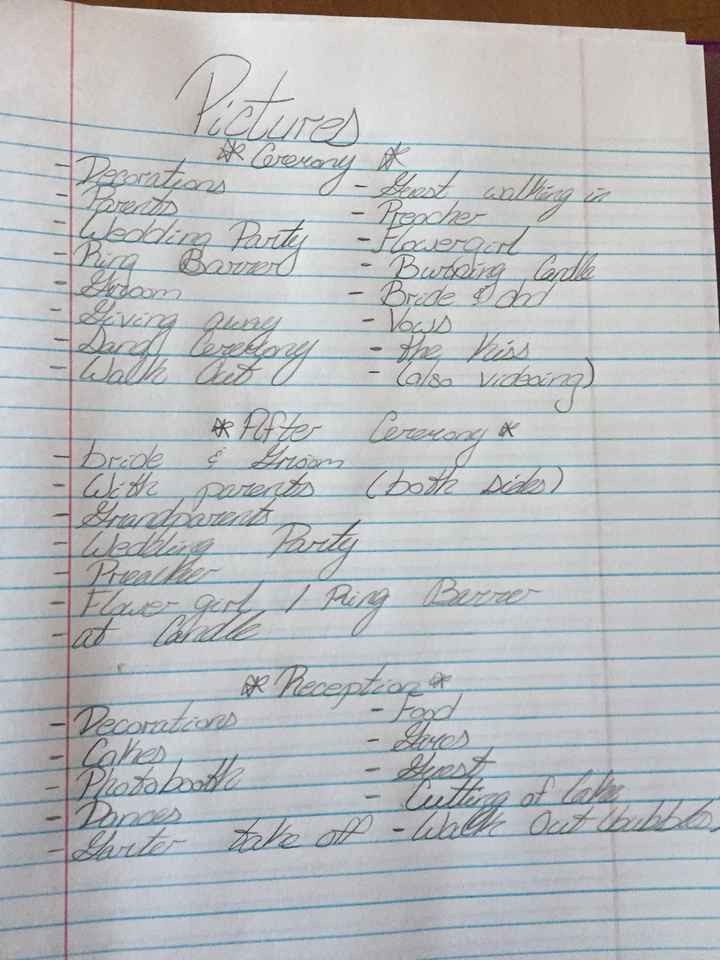 Pictures
* Ceremony *
- Decorations - Guest walking in
- Parents - Preacher
- Wedding Party - Flowergirl
- Ring Barrer - Burning Candle
- Groom - Bride & dad
- Giving away - Vows
- Sand Ceremony - the Kiss
- Walk Out - (also videoing)
* After Ceremony *
- bride & Groom
- With parents (both sides)
- Grandparents
- Wedding Party
- Preacher
- Flower girl / Ring Barrer
- at Candle
* Reception *
- Decorations - Food
- Cakes -
- Photobooth - Guest
- Dances - Cutting of Cake
- Garter take off - Walk Out (bubbles